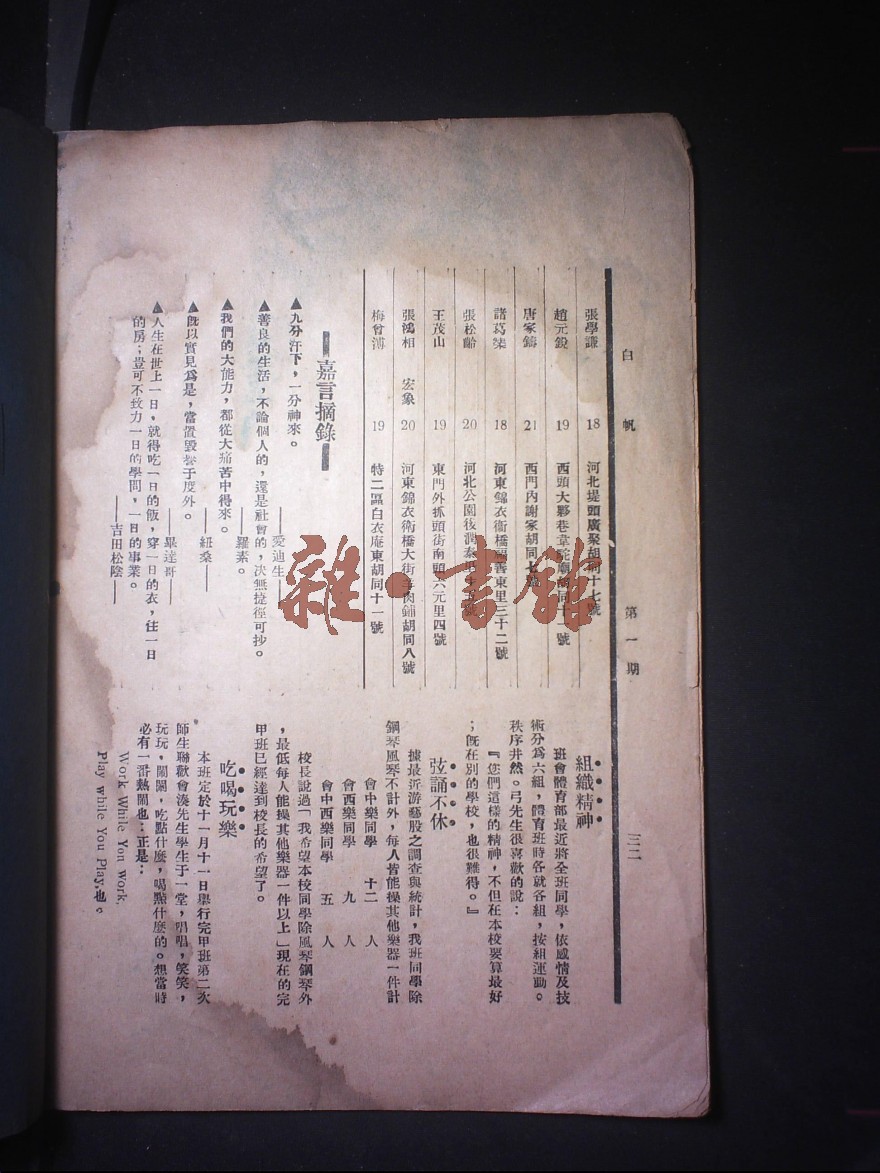 白帆
第一期
三二
張學謙 18 河北堤頭廣聚胡同十七號
趙元銳 19 西頭大夥巷韋陀廟胡同十一號
唐家鑄 21 西門內謝家胡同七號
諸葛棨 18 河東錦衣衞橋福善東里三十二號
張松齡 20 河北公園後潤泰里
王茂山 19 東門外抓頭街南頭六元里四號
張鴻相 宏象 20 河東錦衣衞橋大街羊肉鋪胡同八號
梅曾溥 19 特二區白衣庵東胡同十一號
嘉言摘錄
▲九分汗下，一分神來。
——愛迪生
▲善良的生活，不論個人的，還是社會的，決無捷徑可抄。
——羅素。
▲我們的大能力，都從大痛苦中得來。
——紐桑——
▲旣以實見爲是，當置毀譽于度外。
——畢達哥——
▲人生在世上一日，就得吃一日的飯，穿一日的衣，住一日
的房；豈可不致力一日的學問，一日的事業。
——吉田松陰——
組織精神
班會體育部最近將全班同學，依感情及技
術分爲六組，體育班時各就各組，按組運動。
秩序井然。弓先生很喜歡的說：
『您們這樣的精神，不但在本校要算最好
；旣在別的學校，也很難得。』
弦誦不休
據最近游藝股之調查與統計，我班同學除
鋼琴風琴不計外，每人皆能操其他樂器一件計
會中樂同學 十二人
會西樂同學 九人
會中西樂同學 五人
校長說過「我希望本校同學除風琴鋼琴外
，最低每人能操其他樂器一件以上」現在的完
甲班已經達到校長的希望了。
吃喝玩樂
本班定於十一月十一日舉行完甲班第二次
師生聯歡會湊先生學生于一堂，唱唱，笑笑，
玩玩，鬧鬧，吃點什麼，喝點什麼的。想當時
必有一番熱鬧也：正是：
Work While You Work,
Play while You Play,也。
雜·書館